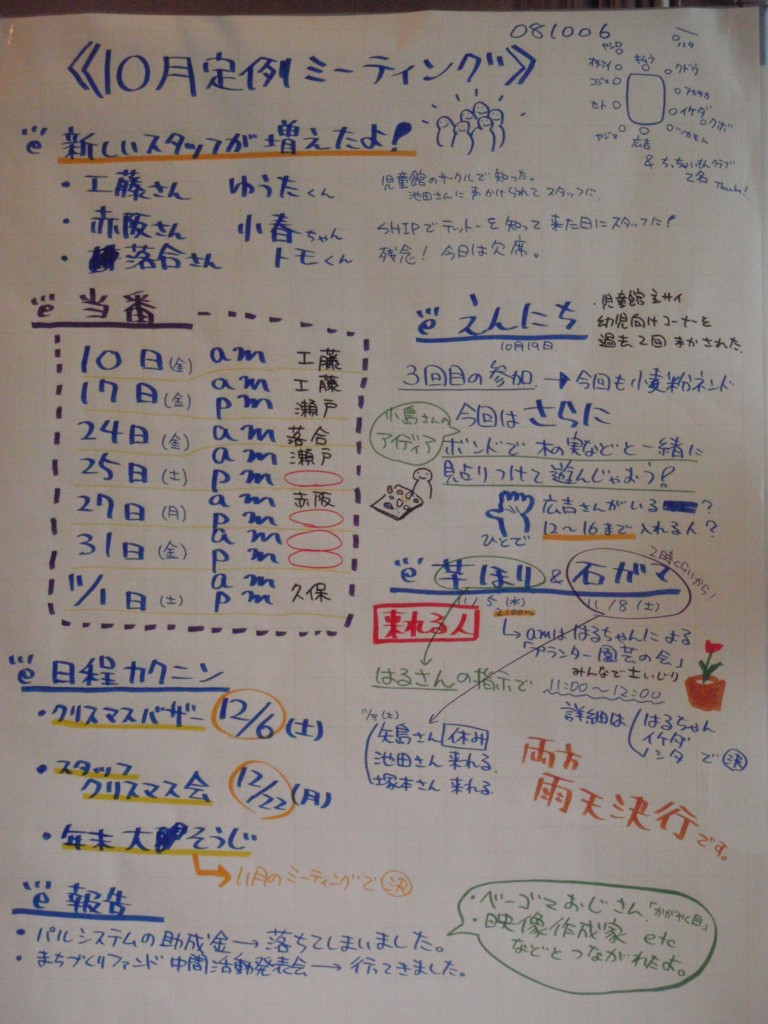 081006
《10月定例ミーティング》
ヤジロ
キムラ
クドウ
アカサカ
イケダ
クボ
広吉
ヤジマ
セト
コジマ
& ちっちゃいもんクラブ
2名
Thanks!
新しいスタッフが増えたよ!
・工藤さん ゆうたくん
児童館のサークルで知った。
池田さんに声かけられてスタッフに
・赤阪さん 小春ちゃん
SHIPでテットーを知って来た日にスタッフに!
・落合さん トモくん
残念!今日は欠席。
当番
10日(金) am 工藤
17日(金) am 工藤
pm 瀬戸
24日(金) am 落合
pm 瀬戸
25日(土) am
pm
27日(月) am 赤阪
pm
31日(金) am
pm
11/1日(土) am
pm 久保
えんにち
10月19日
・児童館主サイ
幼児向けコーナーを
過去2回まかされた。
3回目の参加 → 今回も小麦粉ネンド
小島さんの
アイディア
今回はさらに
ボンドで木の実などと一緒に
貼りつけて遊んじゃおう!
ひとで
広吉さんがいる ?
12〜16まで入れる人?
芋ほり & 石ガマ
2時くらいから!
11/5(水)
11/8(土)
来れる人
amははるちゃんによる
「プランター園芸の会」
みんなで土いじり
11:00〜12:00
はるさんの指示で
詳細は はるちゃん
イケダ
で 決
11/8(土)
矢島さん 休み
池田さん 来れる
塚本さん 来れる
両方
雨天決行です。
日程カクニン
・クリスマスバザー 12/6(土)
・スタッフ
クリスマス会 12/22(月)
・年末大そうじ
11月のミーティングで 決
報告
・パルシステムの助成金→落ちてしまいました。
・まちづくりファンド中間活動発表会→行ってきました。
・ベーゴマおじさん「かがやく目」
・映像作成家 etc
などとつながれたよ。